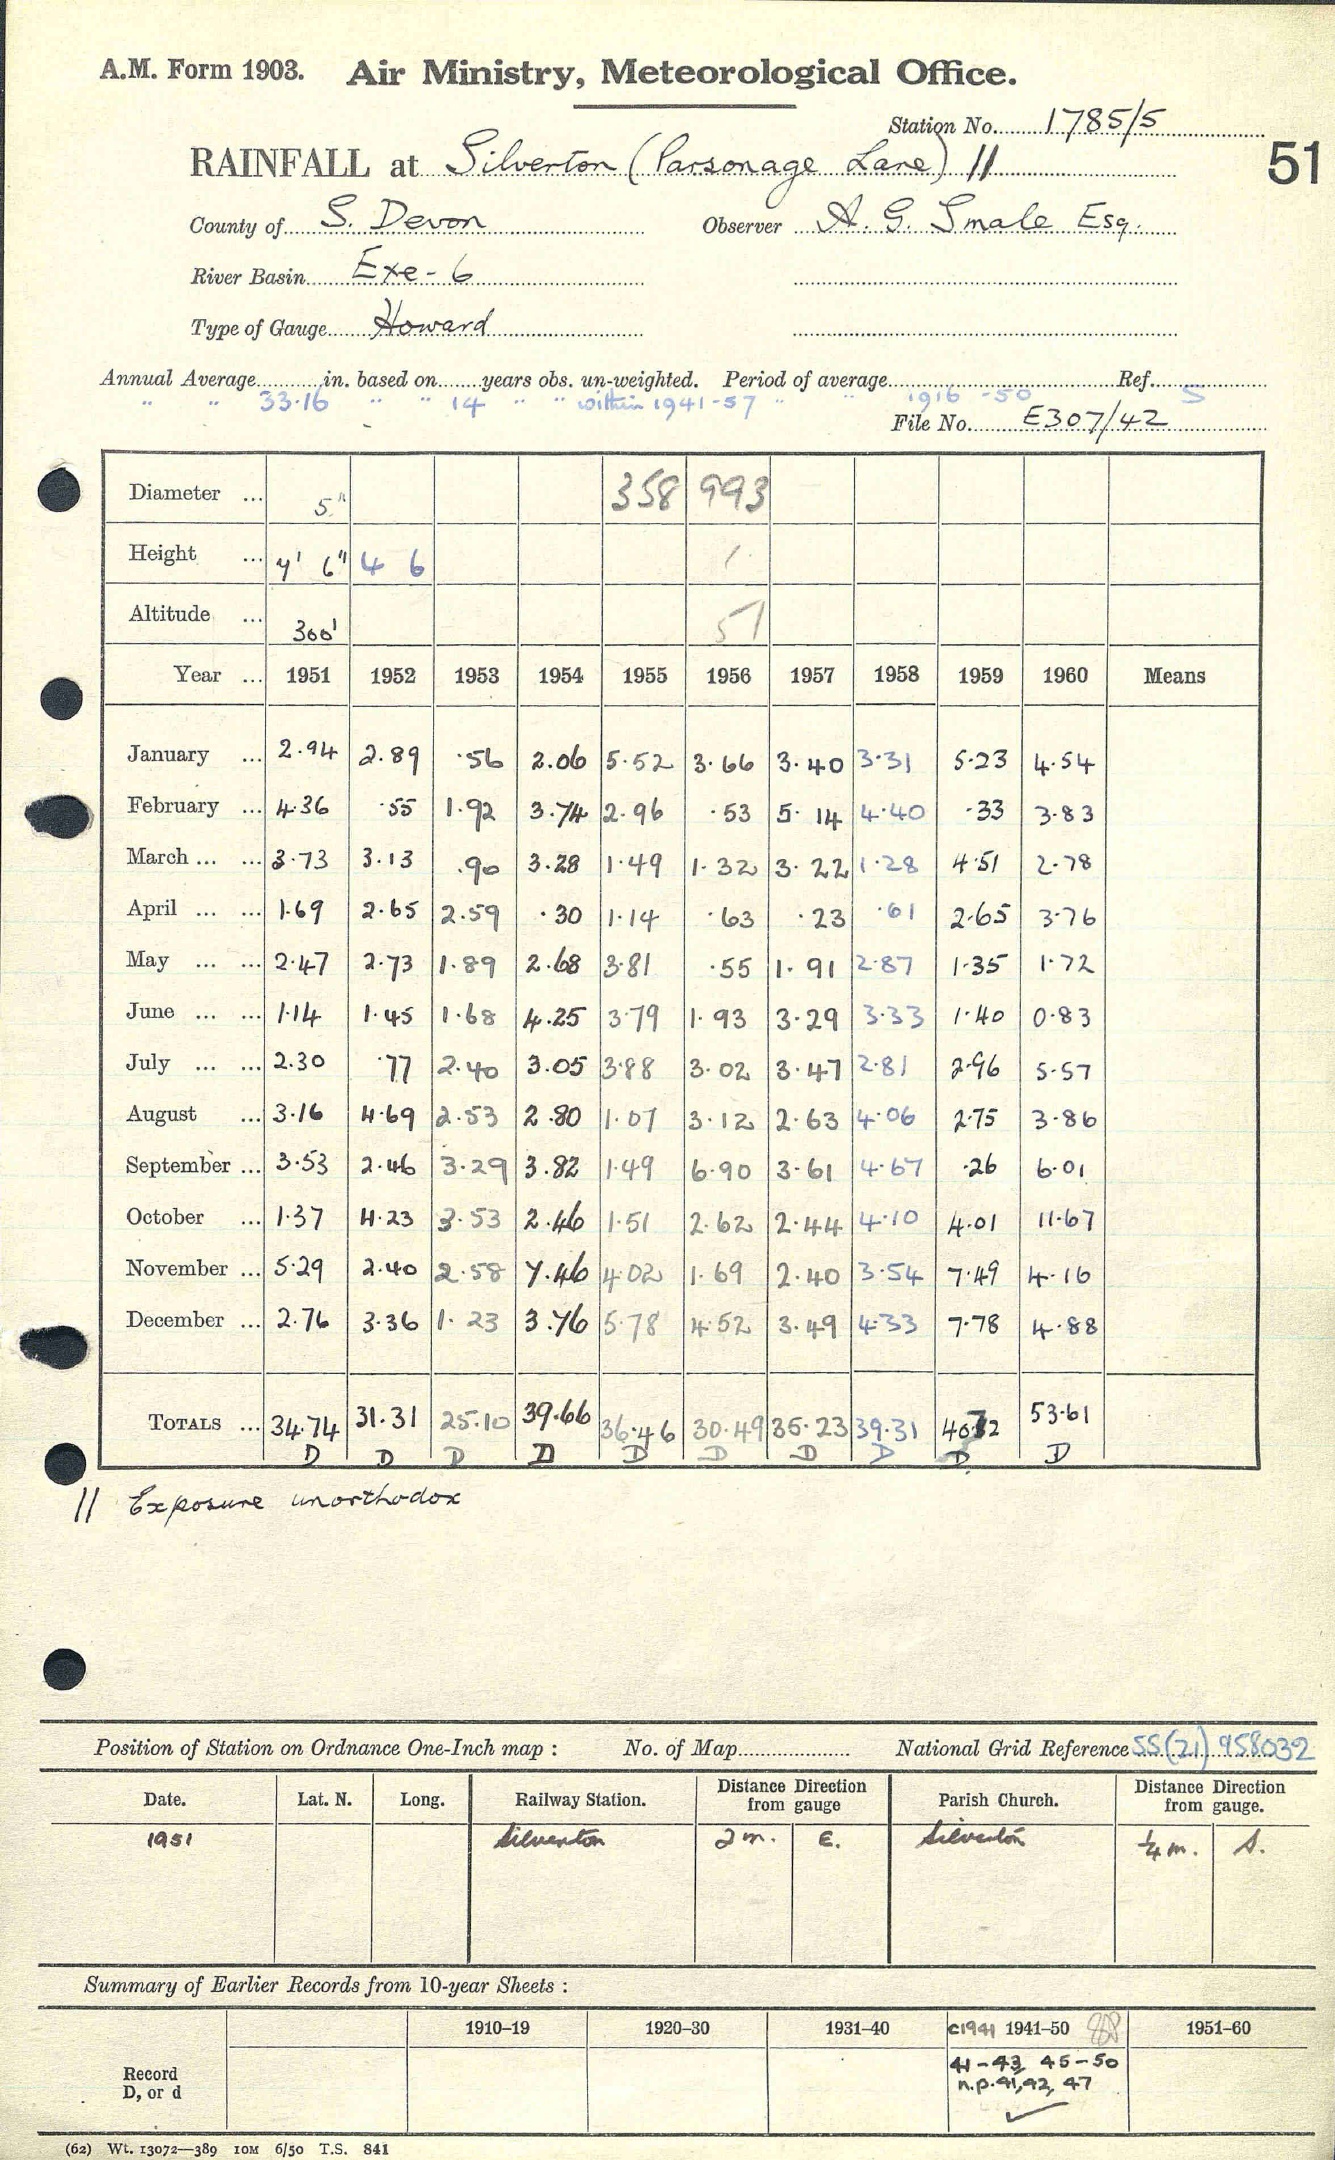 A.M. Form 1903. Air Ministry, Meteorological Office.
Station No. 1785/5
RAINFALL at Silverton (Parsonage Lane) || 51
County of S. Devon Observer A. G. Smale Esq.
River Basin Exe-6
Type of Gauge Howard
Annual Average in. based on years obs. un-weighted. Period of average Ref.
" " 33.16 " " 14 " " within 1941-57 " " 1916-50 S
File No. E307/42
Diameter ... 5" 358 993
Height ... 4' 6" 4 6 1
Altitude ... 300' 51
Year ... 1951 1952 1953 1954 1955 1956 1957 1958 1959 1960 Means
January ... 2.94 2.89 .56 2.06 5.52 3.66 3.40 3.31 5.23 4.54
February ... 4.36 .55 1.92 3.74 2.96 .53 5.14 4.40 .33 3.83
March ... ... 3.73 3.13 .90 3.28 1.49 1.32 3.22 1.28 4.51 2.78
April ... ... 1.69 2.65 2.59 .30 1.14 .63 .23 .61 2.65 3.76
May ... ... 2.47 2.73 1.89 2.68 3.81 .55 1.91 2.87 1.35 1.72
June ... ... 1.14 1.45 1.68 4.25 3.79 1.93 3.29 3.33 1.40 0.83
July ... ... 2.30 .77 2.40 3.05 3.88 3.02 3.47 2.81 2.96 5.57
August ... 3.16 4.69 2.53 2.80 1.07 3.12 2.63 4.06 2.75 3.86
September ... 3.53 2.46 3.29 3.82 1.49 6.90 3.61 4.67 .26 6.01
October ... 1.37 4.23 3.53 2.46 1.51 2.62 2.44 4.10 4.01 11.67
November ... 5.29 2.40 2.58 7.46 4.02 1.69 2.40 3.54 7.49 4.16
December ... 2.76 3.36 1.23 3.76 5.78 4.52 3.49 4.33 7.78 4.88
TOTALS ... 34.74 31.31 25.10 39.66 36.46 30.49 35.23 39.31 40.72 53.61
D D D D D D D D D D
|| Exposure unorthodox
Position of Station on Ordnance One-Inch map : No. of Map National Grid Reference SS(21) 958032
Date. Lat. N. Long. Railway Station. Distance Direction from gauge Parish Church. Distance Direction from gauge.
1951 Silverton 2 m. E. Silverton ¼ m. S.
Summary of Earlier Records from 10-year Sheets :
1910–19 1920–30 1931–40 c1941 1941–50 1951–60
Record D, or d 41-43, 45-50
n.p. 41, 42, 47
(62) Wt. 13072—389 10M 6/50 T.S. 841